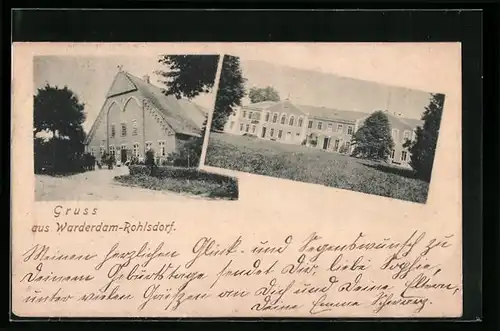 Gruss
aus Warderdam-Rohlsdorf.
Meinen herzlichen Glück- und Segenswunsch zu
Deinem Geburtstage sendet Dir, liebe Sophie,
unter vielen Grüßen an Dich und Deine Eltern,
Deine Emma